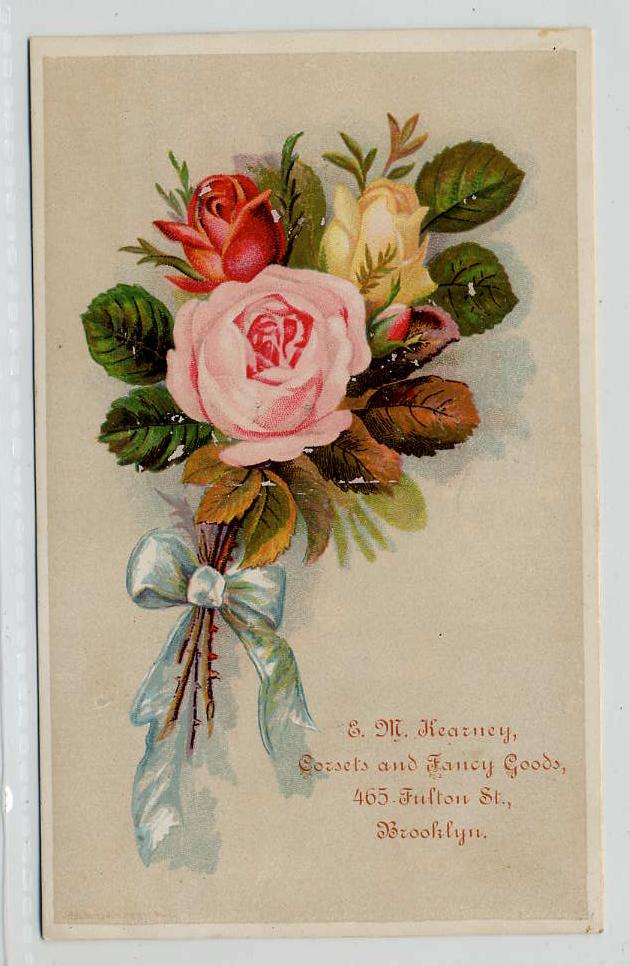 E. M. Kearney,
Corsets and Fancy Goods,
465 Fulton St.,
Brooklyn.